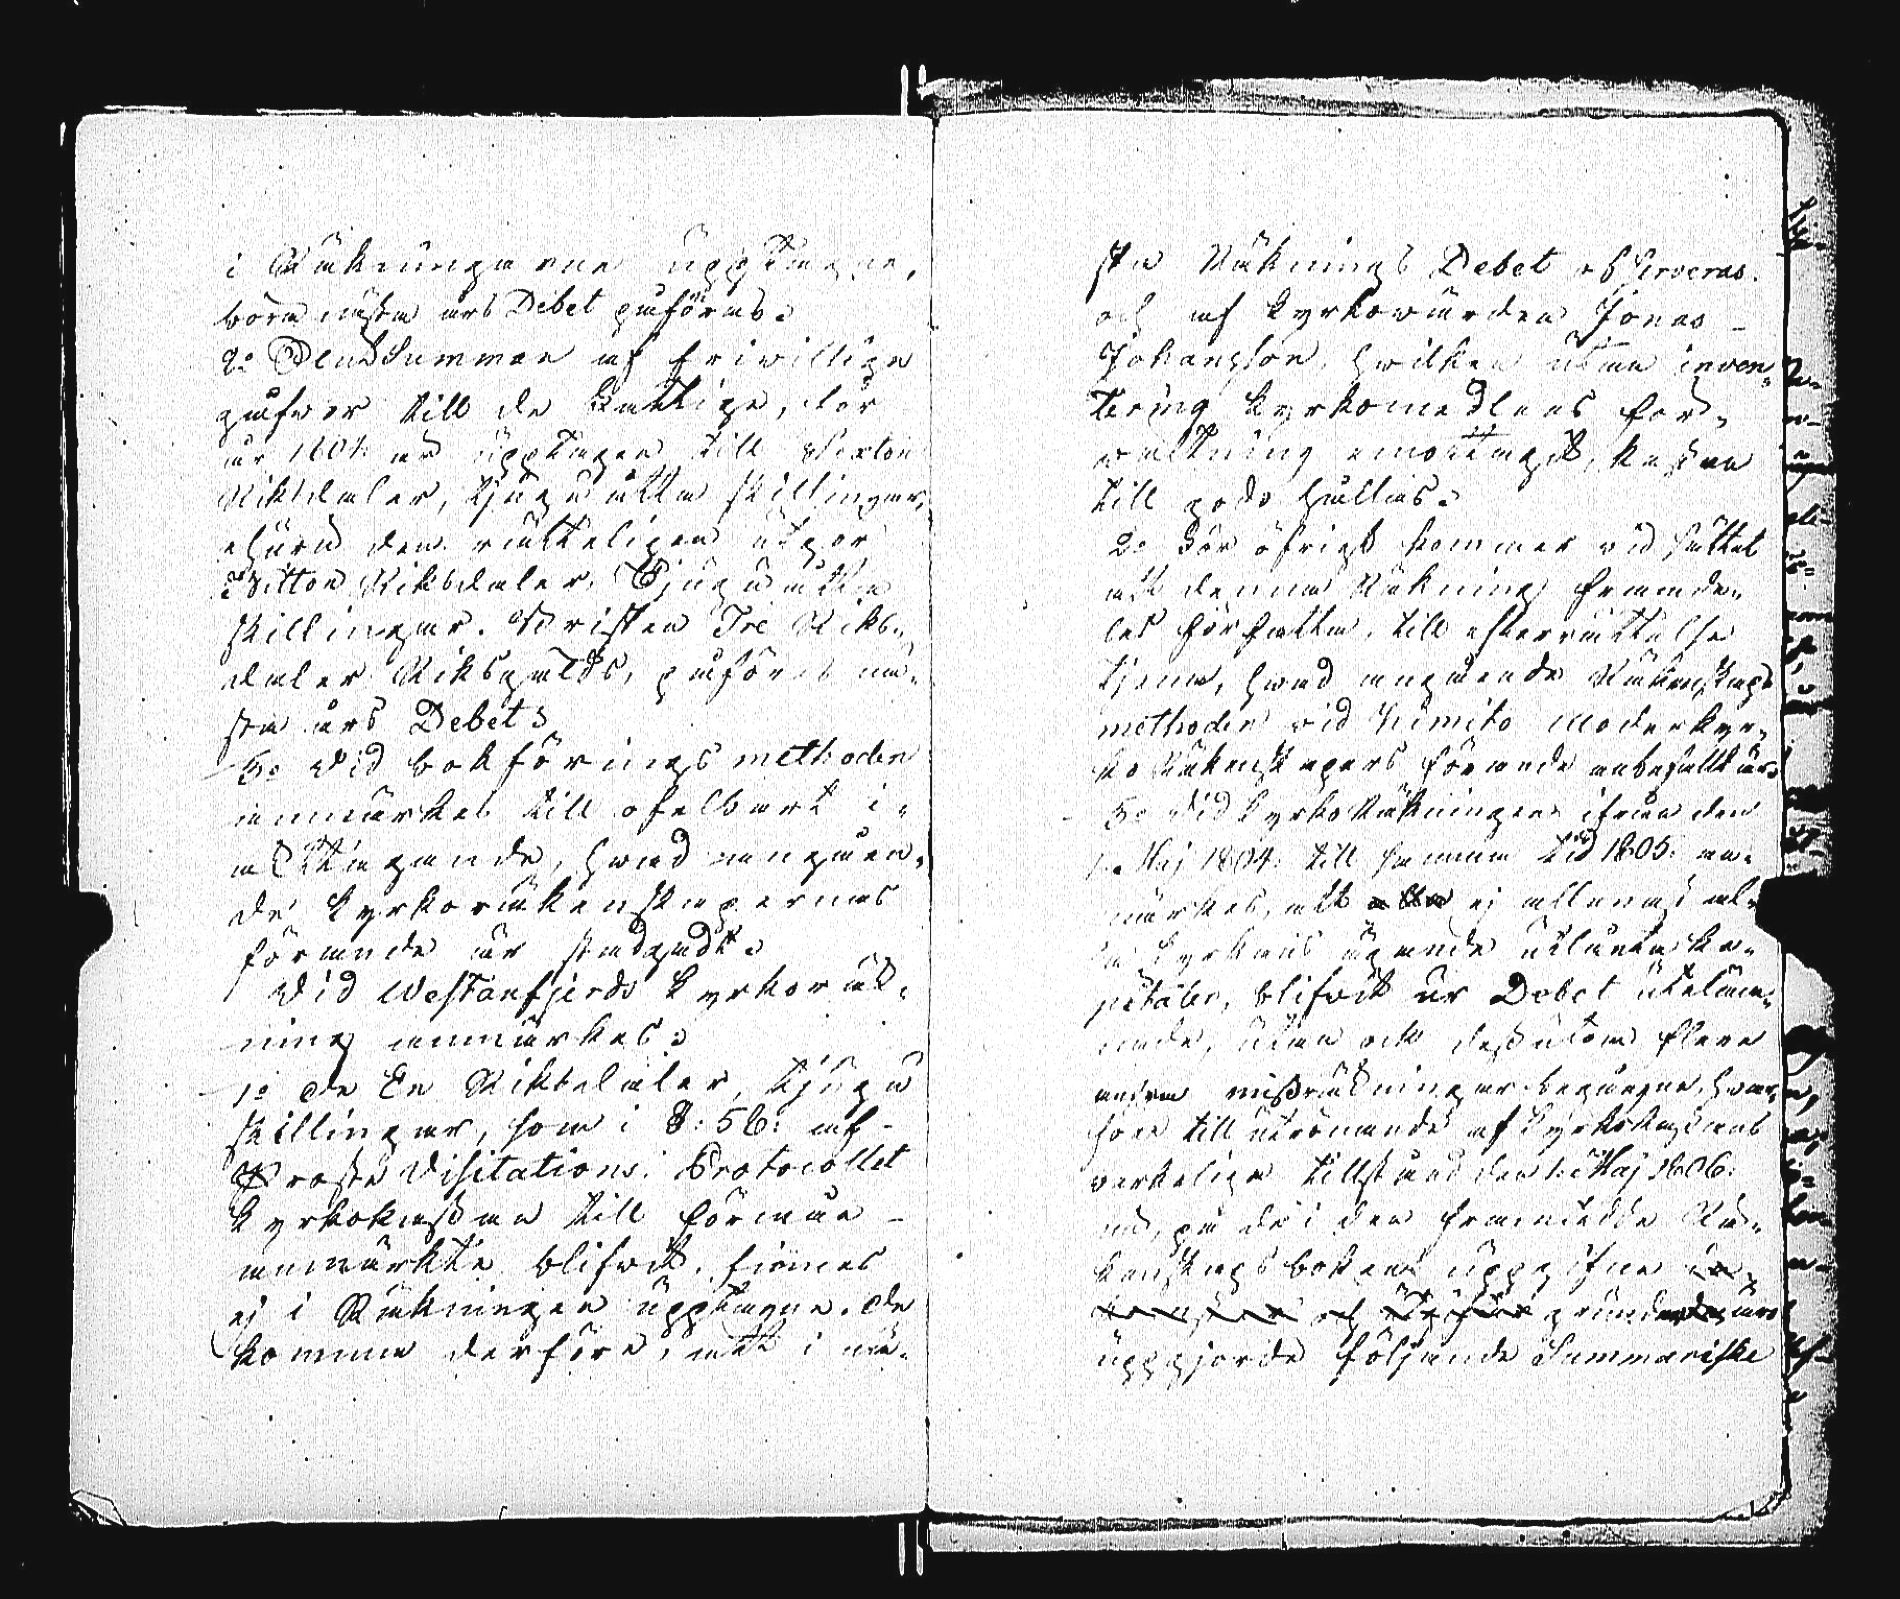 i Räkningarne upptagne,
böra nästa års Debet påföras.
2:o Den Summan af friwillige
gåfwor till de Fattige, för
år 1804 är upptagen till Sexton
Riksdaler, tjugu åtta skillingar,
ehuru den rätteligen utgör
Nitton Riksdaler Tjugu åtta
skillingar. Bristen Tre Riks-
daler Riksgälds, påföres nä-
sta års Debet;
3:o Vid bokförings methoden
anmärkes till ofelbart i-
akttagande, hwad angåen-
de Kyrkoräkenskapernas
förande är stadgadt.
Vid Westanfjerds Kyrkoräk-
ning anmärkes:
1:o De En Riksdaler, tjugu
skillingar, som i §: 56: af
Proste Visitations Protocollet
Kyrkokassan till förmån
anmärkte blifwit, finnes
ej i Räkningen upptagne. De
komma derföre, att i nä-
sta Räknings Debet observeras.
och af Kyrkowärden Jonas
Johansson, hwilken utan inven-
tering Kyrkomedlens för-
waltning emottagit, kassan
till godo hållas.
2:o För öfrigt kommer vid sättet
att denna Räkning framde-
les författa, till efterrättelse
tjena, hwad angående Räkenskaps
methoden vid Kimito Moderkyr-
ko Räkenskapers förande anbefallt är.
3:o Vid Kyrko Räkningen ifrån den
1. Maj 1804. till samma tid 1805. an-
märkes, att ej allenast al-
la Kyrkans ägande utlånta ka-
pitaler, blifwit ur Debet uteläm-
nade, utan ock dessutom flere
andra missräkningar begångne, hwar-
före till utrönande af Kyrkokassans
verkeliga tillstånd den 1: Maj 1806.
nu, på de i den framtedde Rä-
kenskapsboken uppgifne
och grunder
uppgjorde följande Summariske